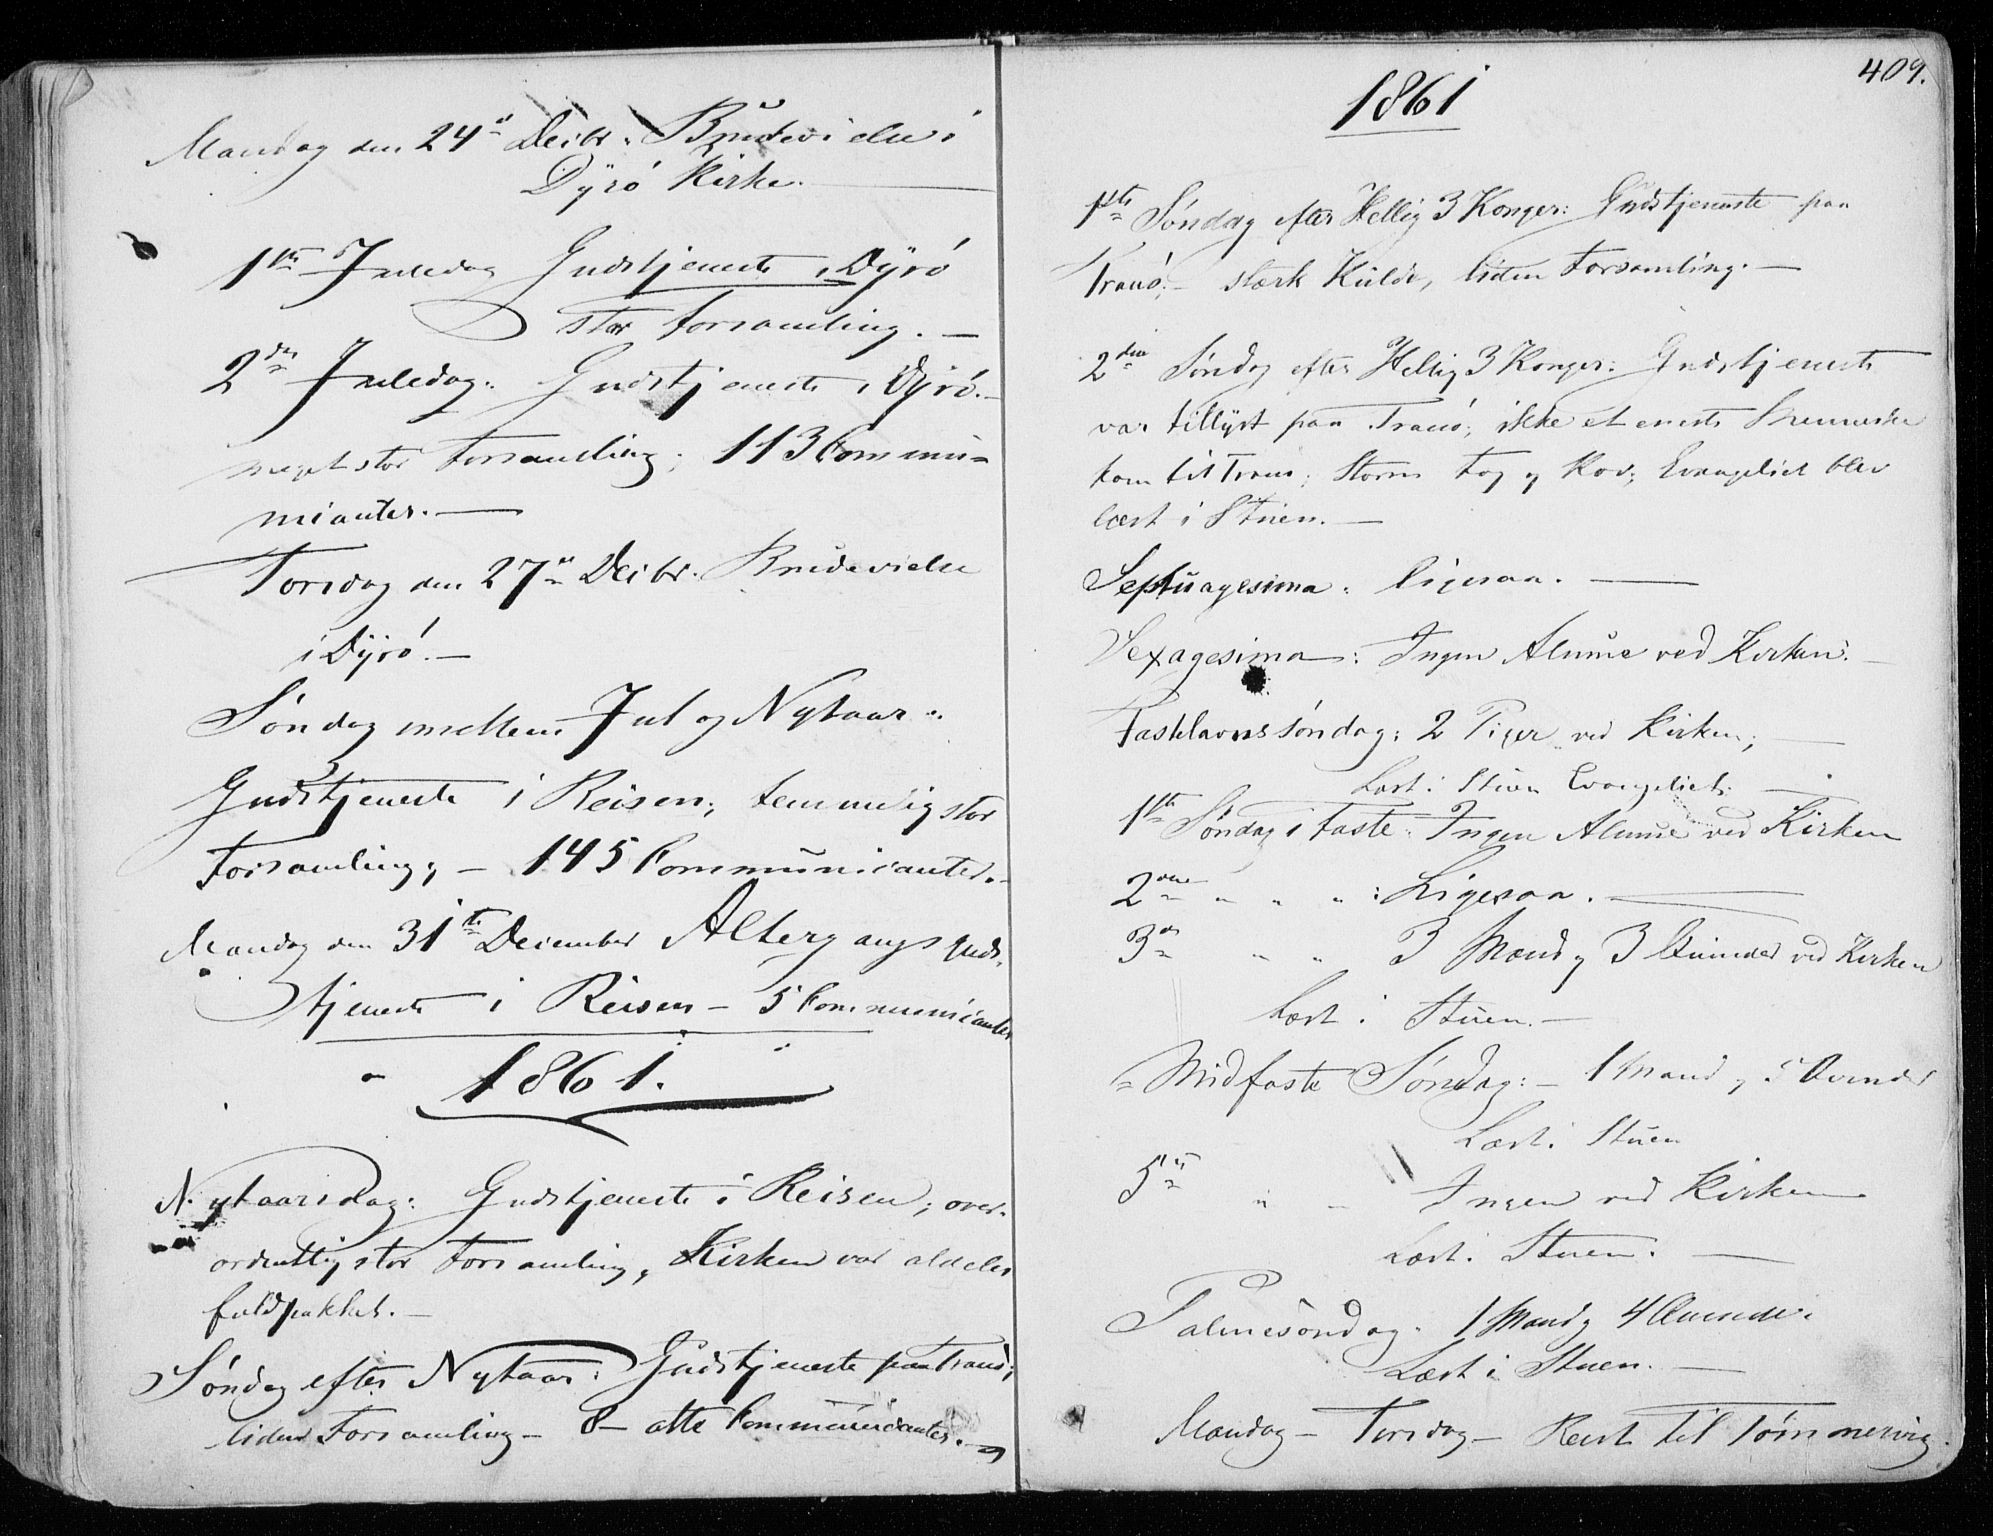 Mandag den 24de Decbr. Brudevielse i
Dyrö Kirke.
1ste Juledag Gudstjeneste i Dyrö
stor Forsamling. —
2den Juledag: Gudstjeneste i Dyrö. —
meget stor Forsamling; 113 Commu-
nicanter. —
Torsdag den 27de Decbr. Brudevielse
i Dyrö. —
Söndag mellem Jul og Nytaar:
Gudstjeneste i Reisen; temmelig stor
Forsamling; — 145 Communicanter. —
Mandag den 31te December Altergangsguds-
tjeneste i Reisen — 5 Communicanter
1861.
Nytaarsdag: Gudstjeneste i Reisen; over-
ordentlig stor Forsamling, Kirken var aldeles
fuldpakket. —
Söndag efter Nytaar: Gudstjeneste paa Tranö;
liden Forsamling — 8 — otte Communicanter. —
409.
1861
1ste Söndag efter Hellig 3 Konger: Gudstjeneste paa
Tranö; — stærk Kulde, liden Forsamling. —
2den Söndag efter Hellig 3 Konger: Gudstjeneste
var tillyst paa Tranö; ikke et eneste Menneske
kom til Tranö; Storm Fog og Kov; Evangeliet blev
læst i Stuen. —
Septuagesima: ligesaa. —
Sexagesima: Ingen Almue ved Kirken. —
Fastelavnssöndag: 2 Piger ved Kirken; —
Læst i Stuen Evangeliet. —
1ste Söndag i Faste: Ingen Almue ved Kirken
2den " " " : Ligesaa. —
3die " " 3 Mænd og 3 Qvinder ved Kirken
Læst i Stuen. —
Midfaste Söndag: — 1 Mand og 5 Qvinder
Læst i Stuen
5te " " Ingen ved Kirken
Læst i Stuen. —
Palmesöndag. 1 Mand og 4 Qvinder.
Læst i Stuen. —
Mandag — Torsdag — Reist til Tömmervig.